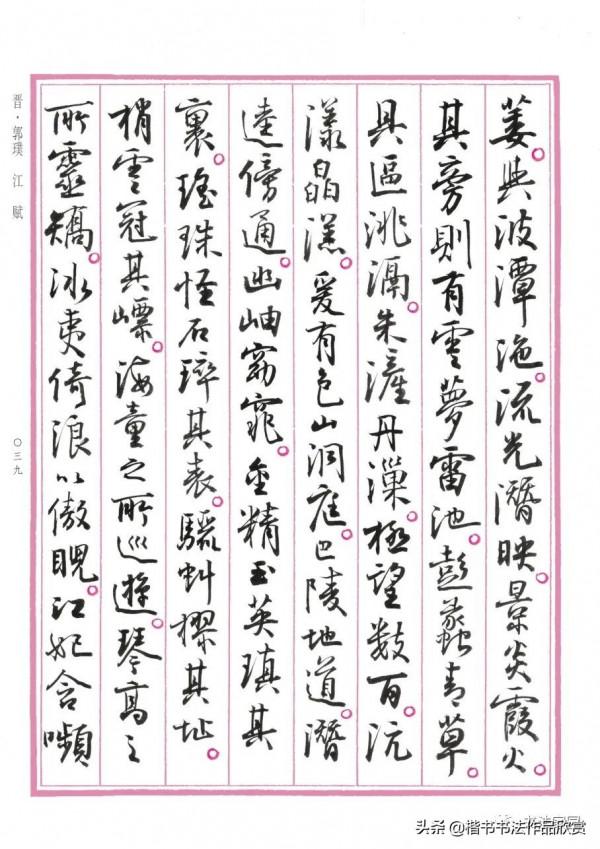 萎。與波潭沲。流光潛映。景炎霞火。
其旁則有雲夢雷池。彭蠡青草。
具區洮滆。朱滻丹漅。極望數百。沆
瀁皛溔。爰有包山洞庭。巴陵地道。潛
逵傍通。幽岫窈窕。金精玉英瑱其
裏。瑤珠怪石琗其表。驪虬摎其址。
梢雲冠其㟽。海童之所巡遊。琴高之
所靈矯。冰夷倚浪以傲睨。江妃含嚬
晋·郭璞 江賦
〇三九
头条@楷书书法作品欣赏